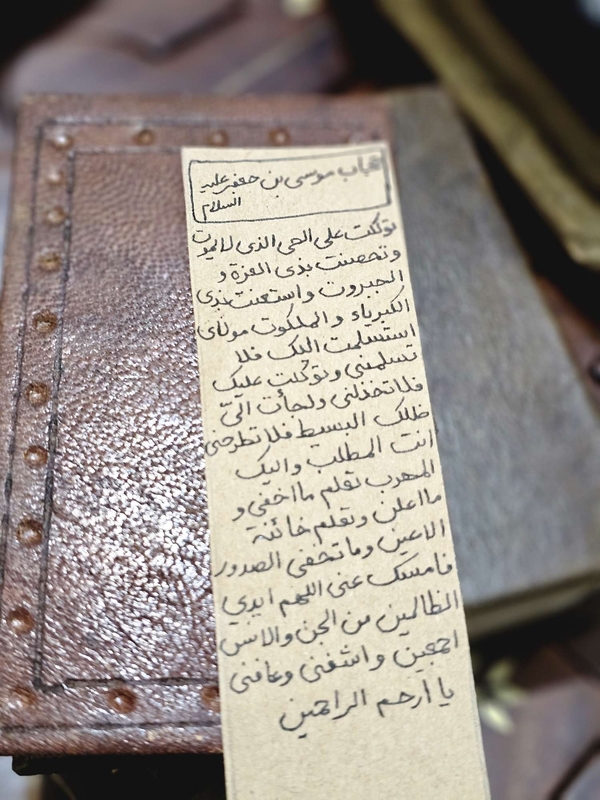 حجاب موسى بن جعفر عليه
السلام
توكلت على الحي الذي لا يموت
وتحصنت بذي العزة و
الجبروت واستعنت بذي
الكبرياء والملكوت مولاي
استسلمت اليك فلا
تسلمني وتوكلت عليك
فلا تخذلني ولجأت الى
ظلك البسيط فلا تطرحني
انت المطلب واليك
المهرب تعلم ما اخفي و
ما اعلن وتعلم خائنة
الاعين وما تخفي الصدور
فامسك عني اللهم ايدي
الظالمين من الجن والانس
اجمعين واشفني وعافني
يا ارحم الراحمين